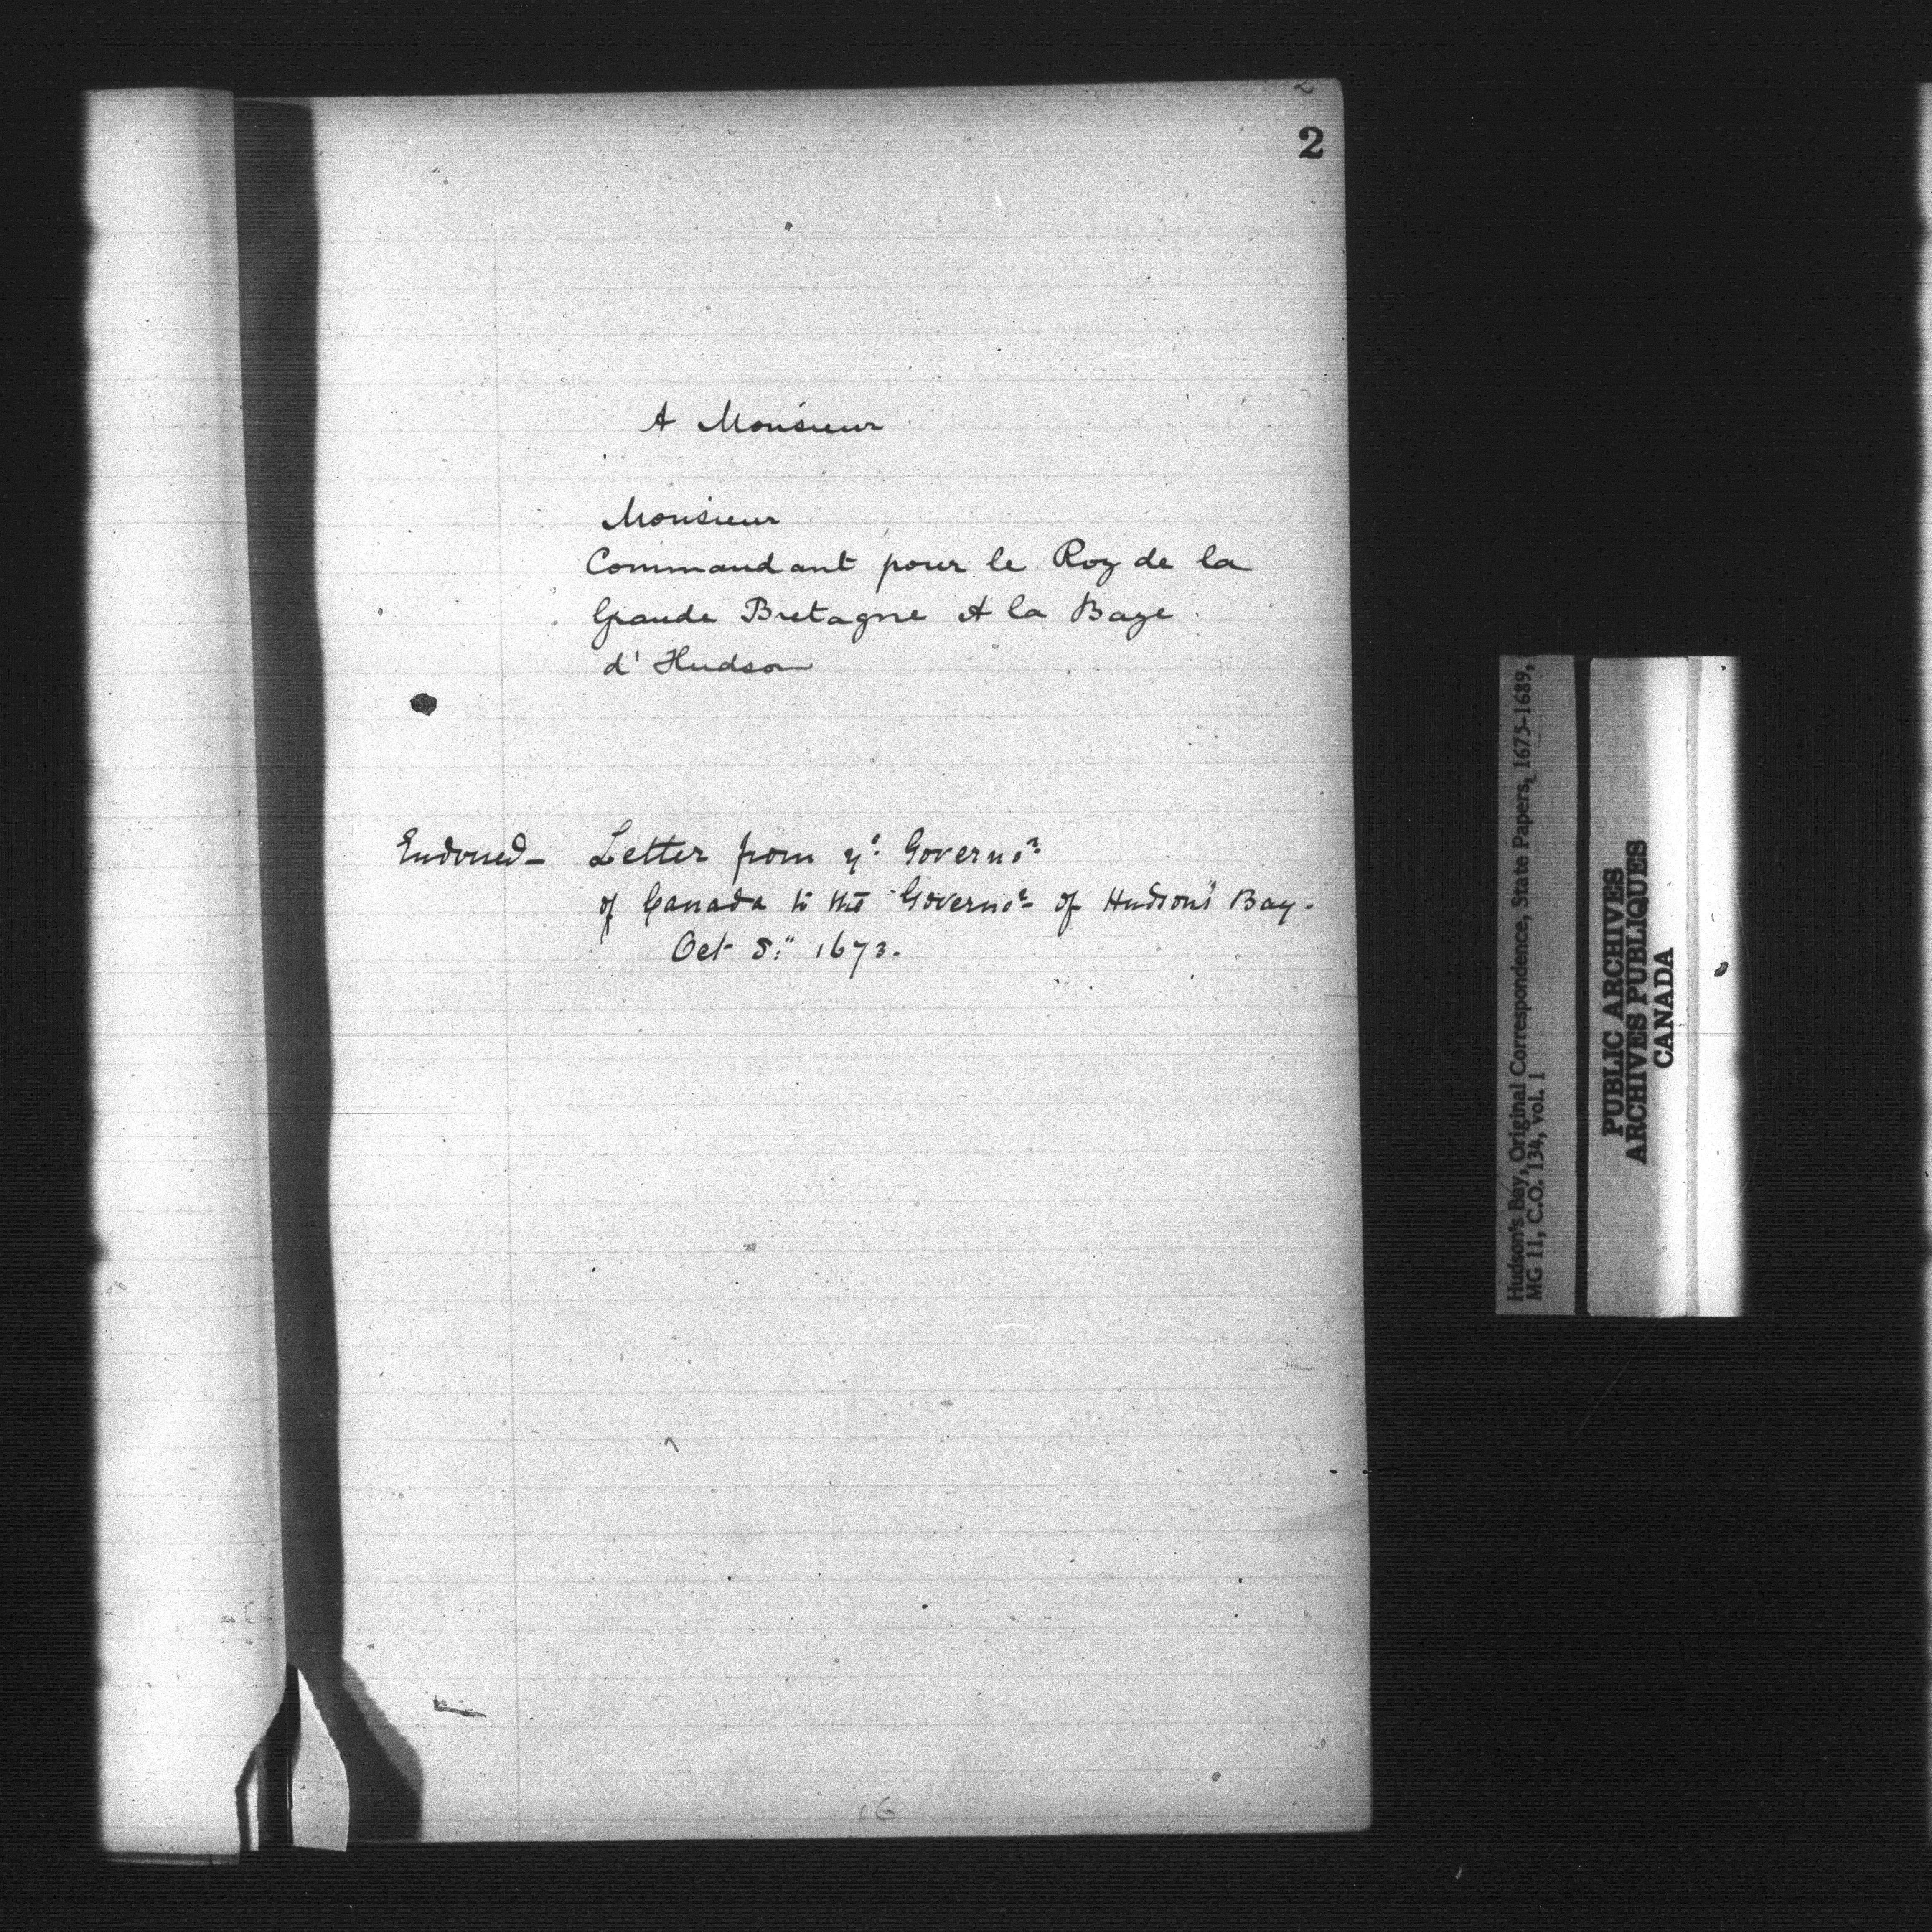 2
2
A Monsieur
Monsieur
Commandant pour le Roy de la
Grande Bretagne A la Baye
d' Hudson
Endorsed - Letter from ye. Governor
of Canada to the Governor of Hudson's Bay.
Oct 8." 1673.
16
Hudson's Bay, Original Correspondence, State Papers, 1675-1689,
MG 11, C.O. 134, vol. 1
PUBLIC ARCHIVES
ARCHIVES PUBLIQUES
CANADA